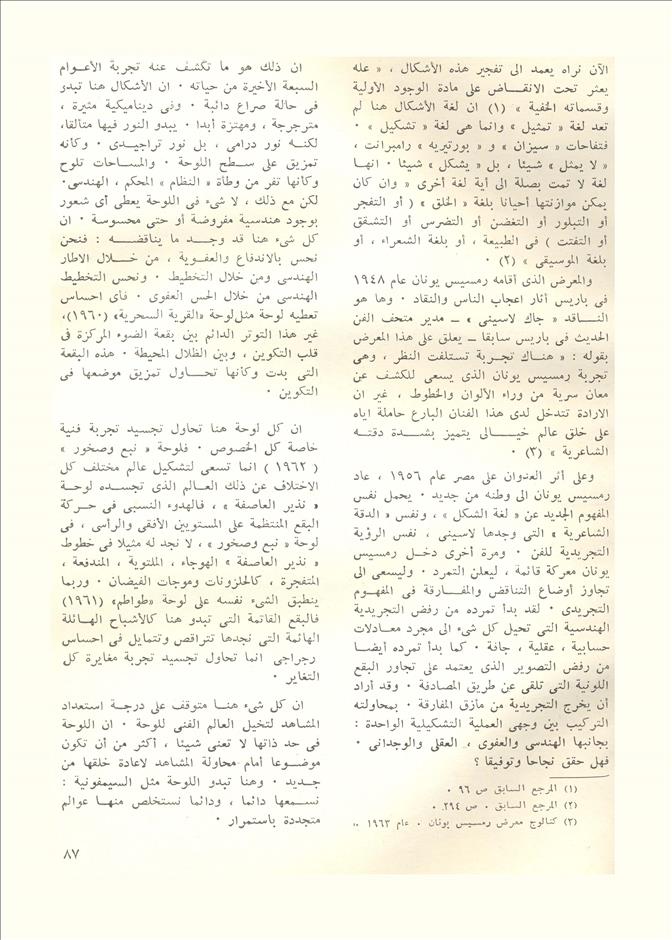 الآن نراه يعمد الى تفجير هذه الأشكال ، « عله
يعثر تحت الانقــاض على مادة الوجود الأولية
وقسماته الخفية » (١) ان لغة الأشكال هنا لم
تعد لغة « تمثيل » وانما هى لغة « تشكيل » ٠
فتفاحات « سيزان » و « بورتيريه » رامبرانت ،
« لا يمثل » شيئا ، بل « يشكل » شيئا ٠ انهــا
لغة لا تمت بصلة الى أية لغة أخرى « وان كان
يمكن موازنتها أحيانا بلغة « الخلق » ( أو التفجر
أو التبلور أو التغضن أو التضرس أو التشقق
أو التفتت ) فى الطبيعة ، أو بلغة الشعراء ، أو
بلغة الموسيقى » (٢) ٠
والمعرض الذى أقامه رمسيس يونان عام ١٩٤٨
فى باريس أثار اعجاب الناس والنقاد ٠ وها هو
النـــاقد « جاك لاسينى » ــ مدير متحف الفن
الحديث فى باريس سابقا ــ يعلق على هذا المعرض
بقوله : « هنــاك تجــربة تستلفت النظر ، وهى
تجربة رمسيس يونان الذى يسعى للكشف عن
معان سرية من وراء الألوان والخطوط ، غير ان
الارادة تتدخل لدى هذا الفنان البارع حاملة اياه
على خلق عالم خيــــالى يتميز بشـــدة دقتــه
الشاعرية » (٣) ٠
وعلى أثر العدوان على مصر عام ١٩٥٦ ، عاد
رمسيس يونان الى وطنه من جديد ٠ يحمل نفس
المفهوم الجديد عن « لغة الشكل » ، ونفس « الدقة
الشاعرية » التى وجدها لاسينى ، نفس الرؤية
التجريدية للفن ٠ ومرة أخرى دخــل رمسيس
يونان معركة قائمة ، ليعلن التمرد ٠ وليسعى الى
تجاوز أوضاع التناقض والمفــارقة فى المفهــوم
التجريدى ٠ لقد بدأ تمرده من رفض التجريدية
الهندسية التى تحيل كل شىء الى مجرد معــادلات
حسابية ، عقلية ، جافة ٠ كما بدأ تمرده أيضــا
من رفض التصوير الذى يعتمد على تجاور البقع
اللونية التى تلقى عن طريق المصادفة ٠ وقد أراد
أن يخرج التجريدية من مأزق المفارقة ٠ بمحاولته
التركيب بين وجهى العملية التشكيلية الواحدة :
بجانبها الهندسى والعفوى ، العقلى والوجدانى ٠
فهل حقق نجاحا وتوفيقا ؟
(١) المرجع السابق ص ٩٦ ٠
(٢) المرجع السابق ٠ ص ٢٩٤ ٠
(٣) كتالوج معرض رمسيس يونان ٠ عام ١٩٦٣ ٠٠
ان ذلك هو ما تكشف عنه تجربة الأعــوام
السبعة الأخيرة من حياته ٠ ان الأشكال هنا تبدو
فى حالة صراع دائبة ٠ وفى ديناميكية مثيرة ،
مترجرجة ، ومهتزة أبدا ٠ يبدو النور فيها متألقا،
لكنــه نور درامى ، بل نور تراجيــدى ٠ وكأنه
تمزيق على سطــح اللوحة ٠ والمســاحات تلوح
وكأنها تفر من وطأة « النظام » المحكم ، الهندسى٠
لكن مع ذلك ، لا شىء فى اللوحة يعطى أى شعور
بوجود هندسية مفروضة أو حتى محسوسة ٠ ان
كل شىء هنا قد وجــد ما يناقضــــه : فنحن
نحس بالاندفاع والعفــوية ، من خــلال الاطار
الهندسى ومن خلال التخطيط ٠ ونحس التخطيط
الهندسى من خلال الحس العفوى ٠ فأى احساس
تعطيه لوحة مثل لوحة «القرية السحرية» (١٩٦٠)،
غير هذا التوتر الدائم بين بقعة الضوء المركزة فى
قلب التكوين ، وبين الظلال المحيطة ٠ هذه البقعة
التى بدت وكأنها تحــاول تمزيق موضعها فى
التكوين ٠
ان كل لوحة هنا تحاول تجسيد تجربة فنية
خاصة كل الخصوص ٠ فلوحة « نبع وصخور »
( ١٩٦٢ ) انما تسعى لتشكيل عالم مختلف كل
الاختلاف عن ذلك العــالم الذى تجســده لوحــة
« نذير العاصفة » ، فالهدوء النسبى فى حــركة
البقع المنتظمة على المستويين الأفقى والرأسى ، فى
لوحة « نبع وصخور » ، لا نجد له مثيلا فى خطوط
« نذير العاصفة » الهوجاء ، الملتوية ، المندفعة ،
المتفجرة ، كالحلزونات وموجات الفيضان ٠ وربما
ينطبق الشىء نفسه على لوحة «طواطم» (١٩٦١)
فالبقع القاتمة التى تبدو هنا كالأشباح الهــائلة
الهائمة التى نجدها تتراقص وتتمايل فى احساس
رجراجى انما تحاول تجسيد تجربة مغايرة كل
التغاير ٠
ان كل شىء هنــا متوقف على درجــة استعداد
المشاهد لتخيل العالم الفنى للوحة ٠ ان اللوحة
فى حد ذاتها لا تعنى شيئا ، أكثر من أن تكون
موضــوعا أمام محاولة المشاهد لاعادة خلقها من
جــديد ٠ وهنا تبدو اللوحة مثل السيمفونية :
نســمعها دائما ، ودائما نستخلص منهــا عوالم
متجددة باستمرار ٠
٨٧